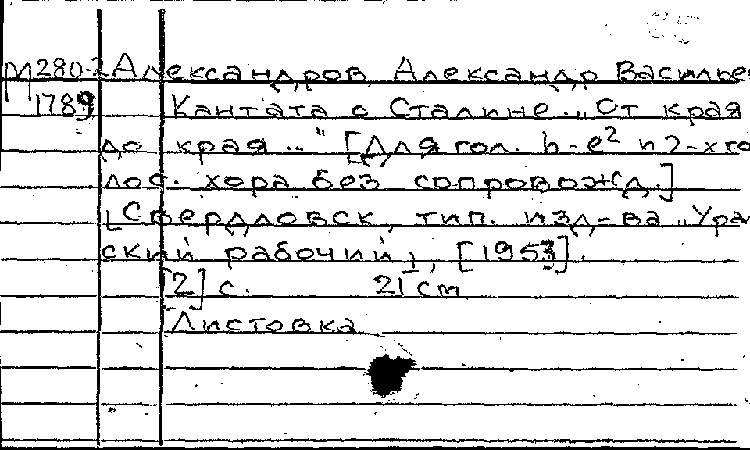 М280-2 Александров, Александр Василье
1789 Кантата о Сталине. „От края
до края..." [Для гол. h-e² и 2-х го
лос. хора без сопровожд.]
[Свердловск, тип. изд-ва „Ура
ский рабочий], [1953].
[2] с. 21 cm
Листовка